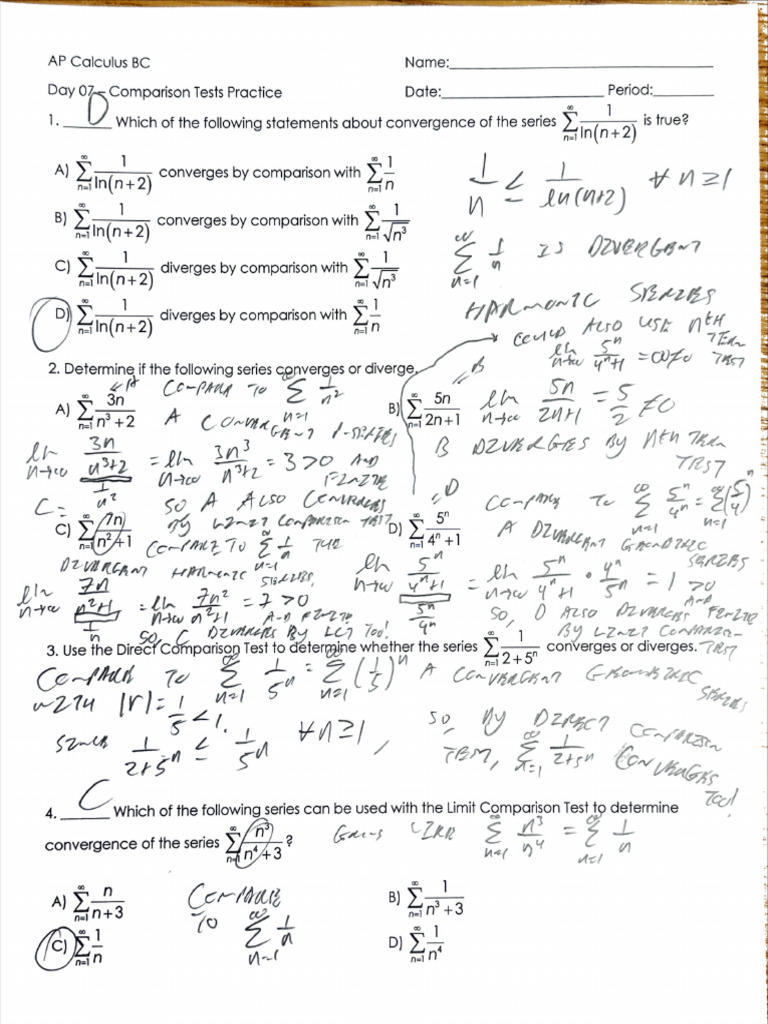 AP Calculus BC Name:____________
Day 07 – Comparison Tests Practice Date:____________ Period:________
1. D Which of the following statements about convergence of the series ∑_{n=1}^{∞} 1/ln(n+2) is true?
A) ∑_{n=1}^{∞} 1/ln(n+2) converges by comparison with ∑_{n=1}^{∞} 1/n
1/n ≤ 1/ln(n+2) ∀ n ≥ 1
B) ∑_{n=1}^{∞} 1/ln(n+2) converges by comparison with ∑_{n=1}^{∞} 1/√n³
∑_{n=1}^{∞} 1/n IS DIVERGENT
C) ∑_{n=1}^{∞} 1/ln(n+2) diverges by comparison with ∑_{n=1}^{∞} 1/√n³
HARMONIC SERIES
D) ∑_{n=1}^{∞} 1/ln(n+2) diverges by comparison with ∑_{n=1}^{∞} 1/n
COULD ALSO USE NTH
TERM TEST
lim_{n→∞} 5ⁿ/4ⁿ+1 = ∞ ≠ 0
2. Determine if the following series converges or diverge.
A) ∑_{n=1}^{∞} 3n/(n³+2)
A COMPARE TO ∑_{n=1}^{∞} 1/n²
A CONVERGENT P-SERIES
lim_{n→∞} (3n/(n³+2))/(1/n²) = lim_{n→∞} 3n³/(n³+2) = 3 > 0 AND
FINITE
SO A ALSO CONVERGES
BY LIMIT COMPARISON TEST
B) ∑_{n=1}^{∞} 5n/(2n+1)
B lim_{n→∞} 5n/(2n+1) = 5/2 ≠ 0
B DIVERGES BY NTH TERM
TEST
C) ∑_{n=1}^{∞} 7n/(n²+1)
C = COMPARE TO ∑_{n=1}^{∞} 1/n THE
DIVERGENT HARMONIC SERIES,
lim_{n→∞} (7n/(n²+1))/(1/n) = lim_{n→∞} 7n²/(n²+1) = 7 > 0
AND FINITE
SO, C DIVERGES BY LCT TOO!
D) ∑_{n=1}^{∞} 5ⁿ/(4ⁿ+1)
D COMPARE TO ∑_{n=1}^{∞} 5ⁿ/4ⁿ = ∑_{n=1}^{∞} (5/4)ⁿ
A DIVERGENT GEOMETRIC
SERIES
lim_{n→∞} (5ⁿ/(4ⁿ+1))/(5ⁿ/4ⁿ) = lim_{n→∞} 5ⁿ/(4ⁿ+1) · 4ⁿ/5ⁿ = 1 > 0
AND FINITE
SO, D ALSO DIVERGENT
BY LIMIT COMPARISON
TEST
3. Use the Direct Comparison Test to determine whether the series ∑_{n=1}^{∞} 1/(2+5ⁿ) converges or diverges.
COMPARE TO ∑_{n=1}^{∞} 1/5ⁿ = ∑_{n=1}^{∞} (1/5)ⁿ A CONVERGENT GEOMETRIC
SERIES
WITH |r| = 1/5 < 1.
SINCE 1/(2+5ⁿ) ≤ 1/5ⁿ ∀ n ≥ 1,
SO, BY DIRECT COMPARISON
TEST, ∑_{n=1}^{∞} 1/(2+5ⁿ) CONVERGES
TOO!
4. C Which of the following series can be used with the Limit Comparison Test to determine
convergence of the series ∑_{n=1}^{∞} n³/(n⁴+3) ?
LIKE ∑_{n=1}^{∞} n³/n⁴ = ∑_{n=1}^{∞} 1/n
A) ∑_{n=1}^{∞} n/(n+3)
B) ∑_{n=1}^{∞} 1/(n³+3)
COMPARE
TO ∑_{n=1}^{∞} 1/n
C) ∑_{n=1}^{∞} 1/n
D) ∑_{n=1}^{∞} 1/n⁴